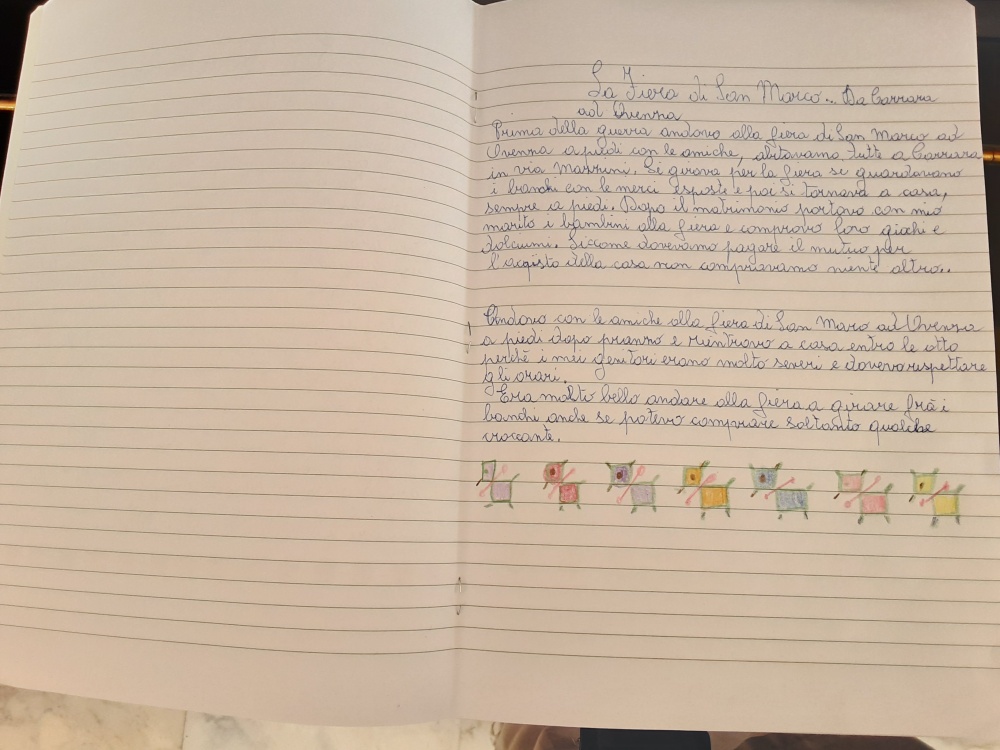 La Fiera di San Marco... Da Carrara
ad Avenza
Prima della guerra andavo alla fiera di San Marco ad
Avenza a piedi con le amiche, abitavamo tutte a Carrara
in via Mazzini. Si girava per la fiera se guardavano
i banchi con le merci esposte e poi si tornava a casa,
sempre a piedi. Dopo il matrimonio portavo con mio
marito i bambini alla fiera e compravo loro giochi e
dolciumi. Siccome dovevamo pagare il mutuo per
l'acqisto della casa non compravamo niente altro..
Andavo con le amiche alla fiera di San Maro ad Avenza
a piedi dopo pranzo e rientravo a casa entro le otto
perchè i miei genitori erano molto severi e dovevo rispettare
gli orari.
Era molto bello andare alla fiera a girare frà i
banchi anche se potevo comprare soltanto qualche
croccante.